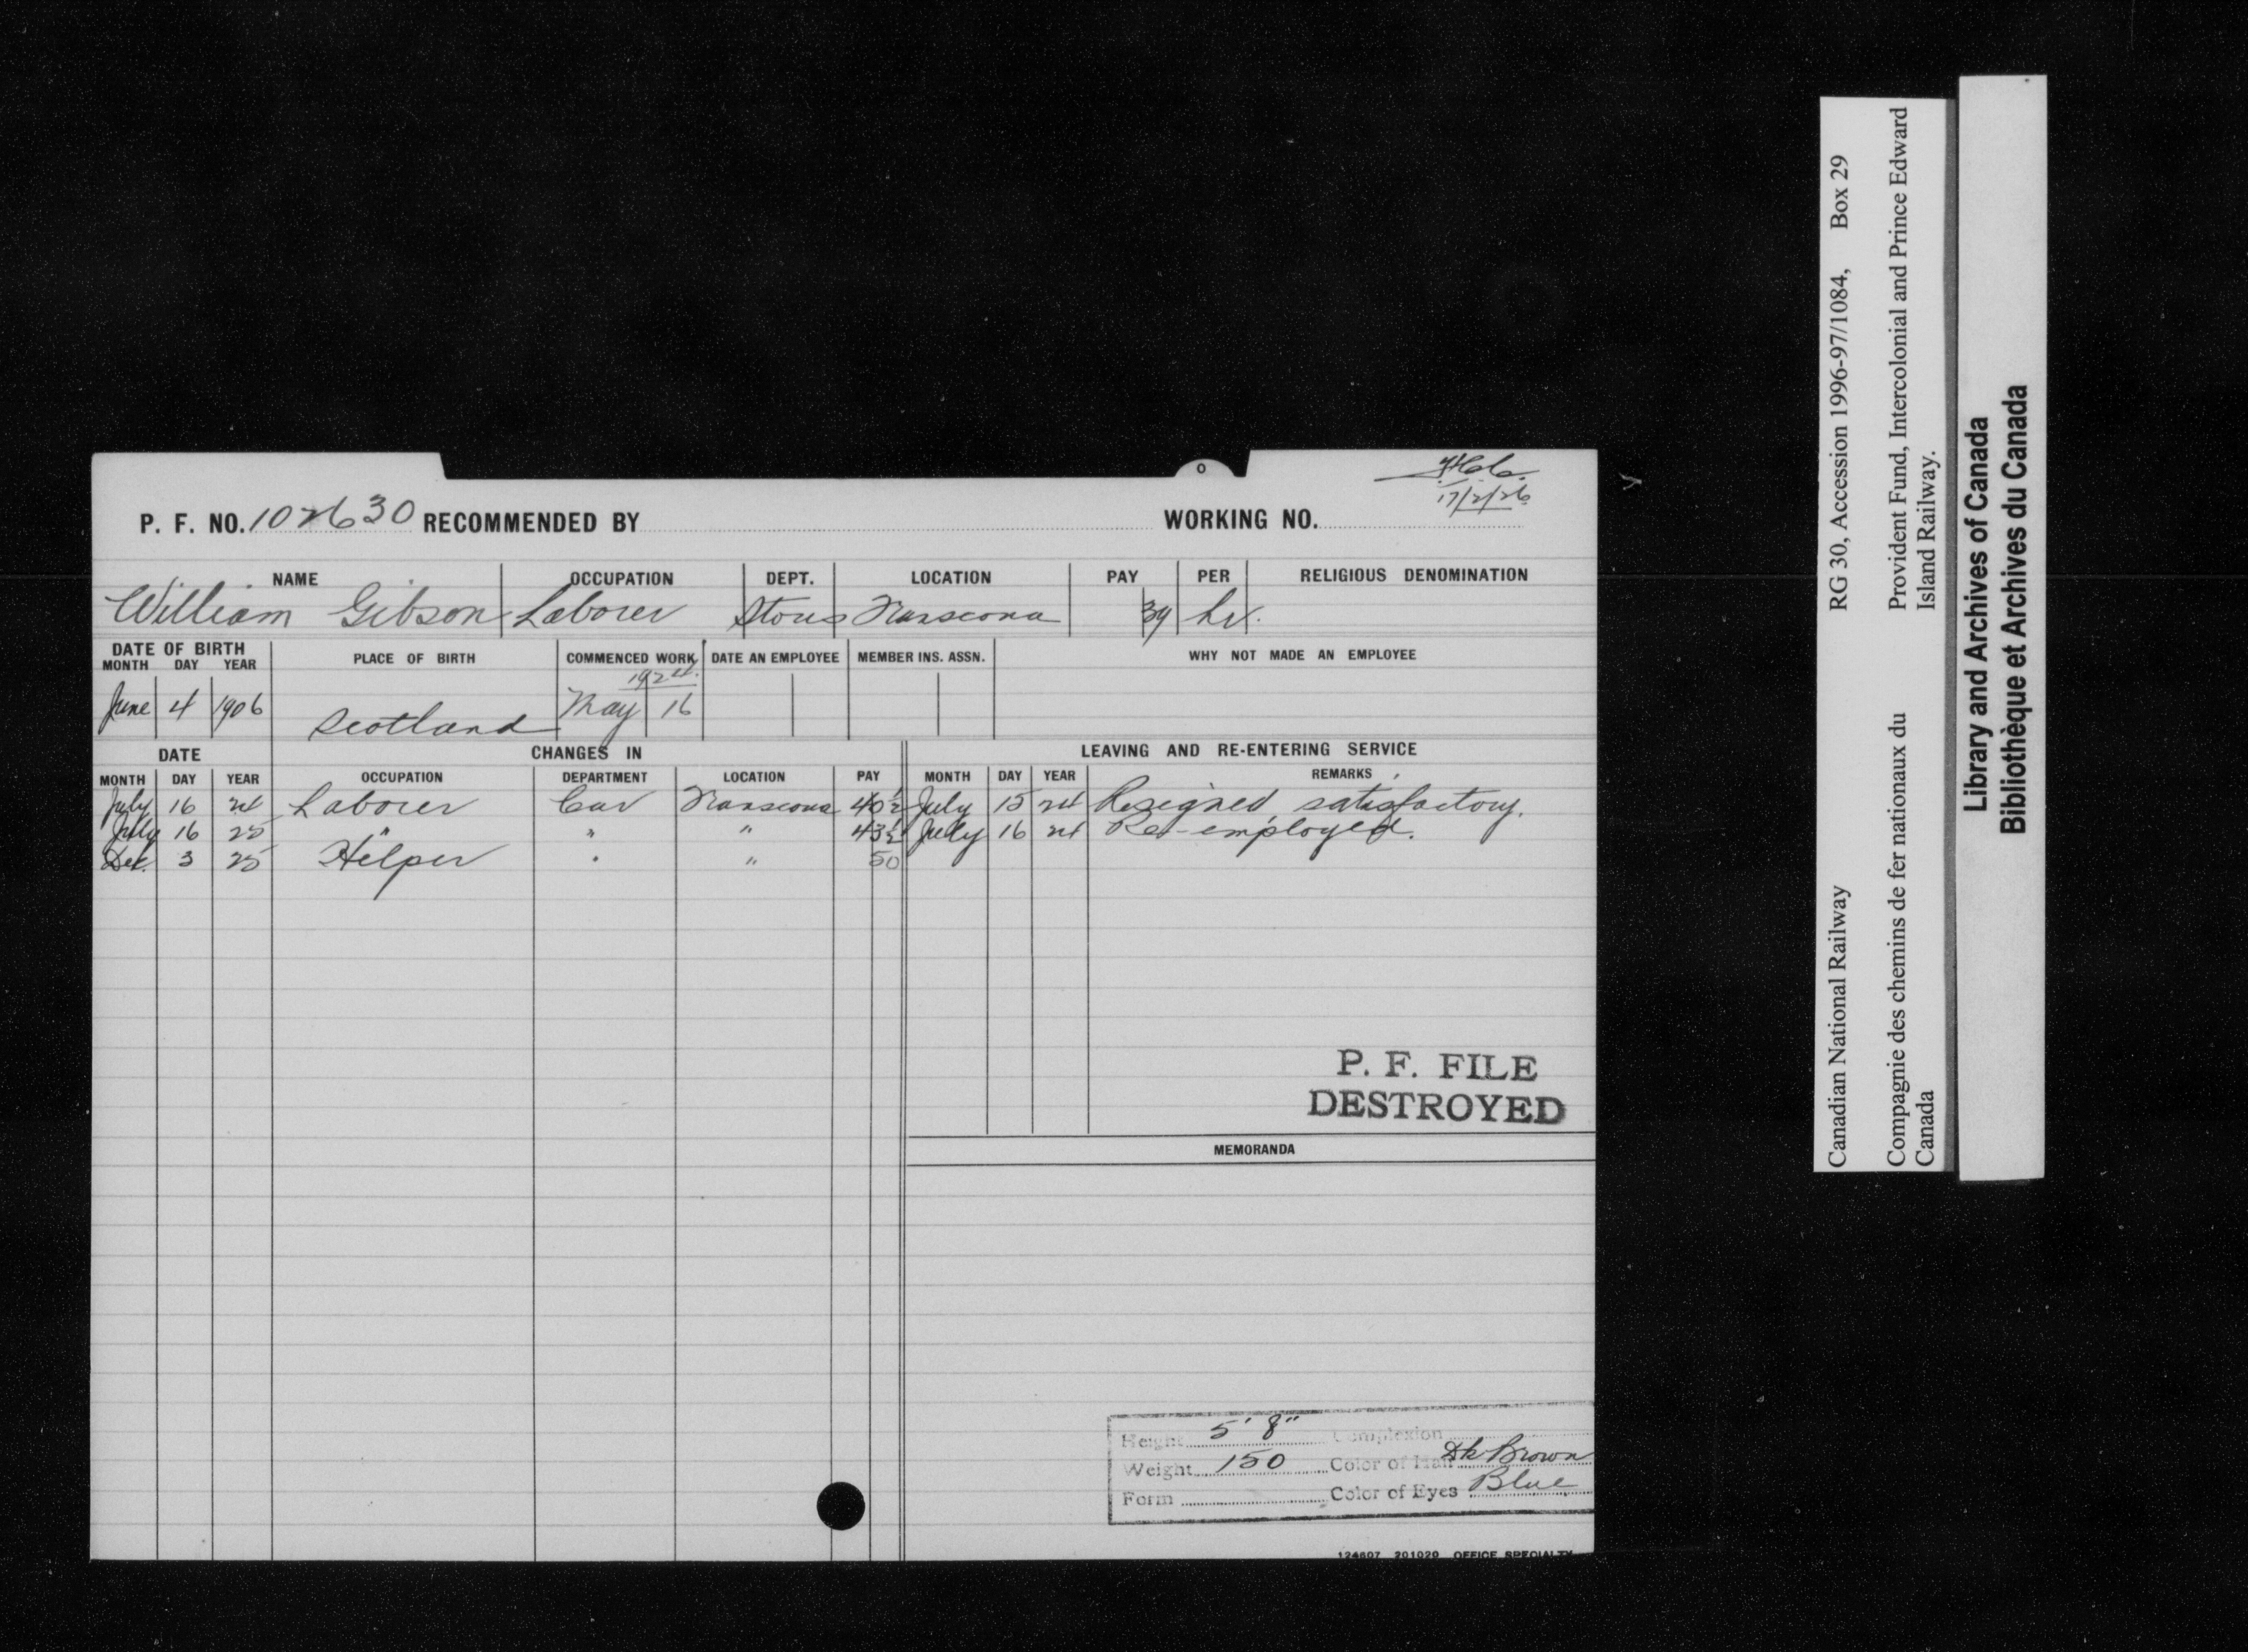 17/2/26
P. F. NO. 102630 RECOMMENDED BY WORKING NO.
NAME OCCUPATION DEPT. LOCATION PAY PER RELIGIOUS DENOMINATION
William Gibson Laborer Stores Transcona 39 hr.
DATE OF BIRTH
MONTH DAY YEAR PLACE OF BIRTH COMMENCED WORK DATE AN EMPLOYEE MEMBER INS. ASSN. WHY NOT MADE AN EMPLOYEE
1924.
June 4 1906 Scotland May 16
DATE CHANGES IN LEAVING AND RE-ENTERING SERVICE
MONTH DAY YEAR OCCUPATION DEPARTMENT LOCATION PAY MONTH DAY YEAR REMARKS
July 16 24 Laborer Car Transcona 40½ July 15 24 Resigned, satisfactory.
July 16 25 " " " 43½ July 16 24 Re-employed.
Dec. 3 25 Helper " " 50
P. F. FILE
DESTROYED
MEMORANDA
Height 5' 8" Complexion
Weight 150 Color of Hair Dk Brown
Form Color of Eyes Blue
124607 201020 OFFICE SPECIALTY
Canadian National Railway RG 30, Accession 1996-97/1084, Box 29
Compagnie des chemins de fer nationaux du Provident Fund, Intercolonial and Prince Edward
Canada Island Railway.
Library and Archives of Canada
Bibliothèque et Archives du Canada